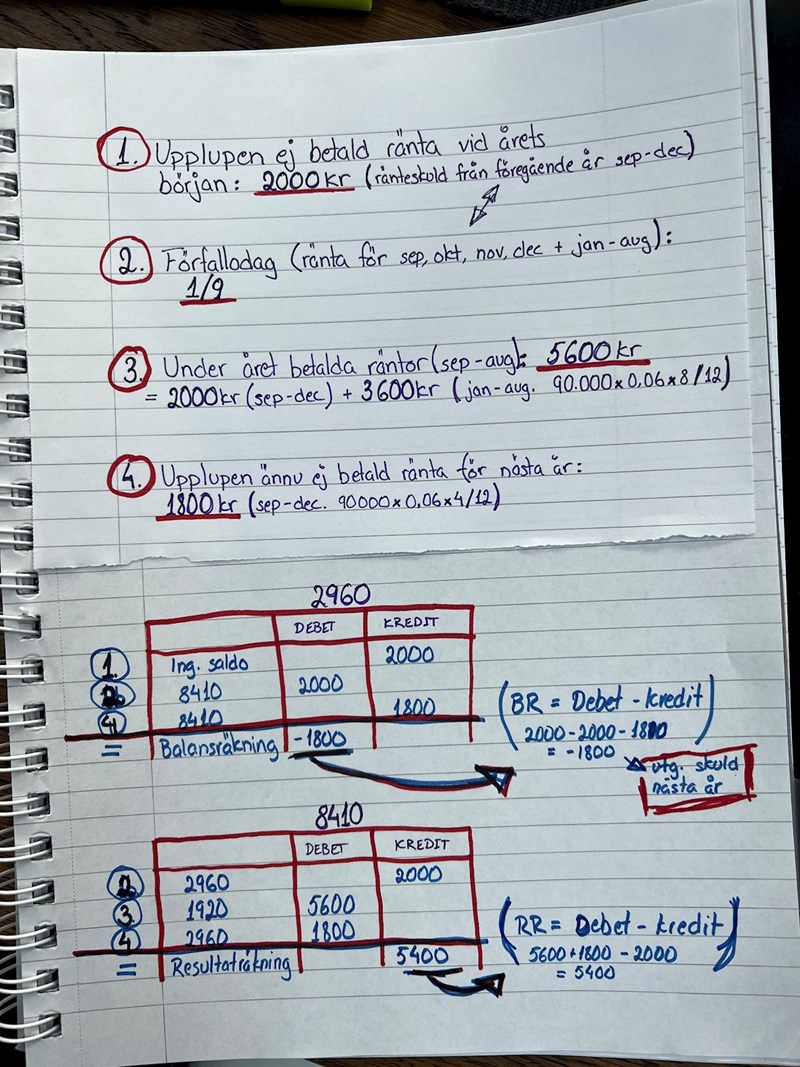 1. Upplupen ej betald ränta vid årets
början: 2000 kr (ränteskuld från föregående år sep-dec)
2. Förfallodag (ränta för sep, okt, nov, dec + jan-aug):
1/9
3. Under året betalda räntor (sep-aug): 5600 kr
= 2000 kr (sep-dec) + 3600 kr (jan-aug. 90.000 x 0,06 x 8/12)
4. Upplupen ännu ej betald ränta för nästa år:
1800 kr (sep-dec. 90000 x 0,06 x 4/12)
2960
DEBET KREDIT
1. Ing. saldo 2000
8410 2000
4 8410 1800
= Balansräkning -1800
(BR = Debet - kredit)
2000-2000-1800
= -1800
utg. skuld
nästa år
8410
DEBET KREDIT
2960 2000
3 1920 5600
4 2960 1800
= Resultaträkning 5400
(RR = Debet - kredit)
5600+1800 - 2000
= 5400